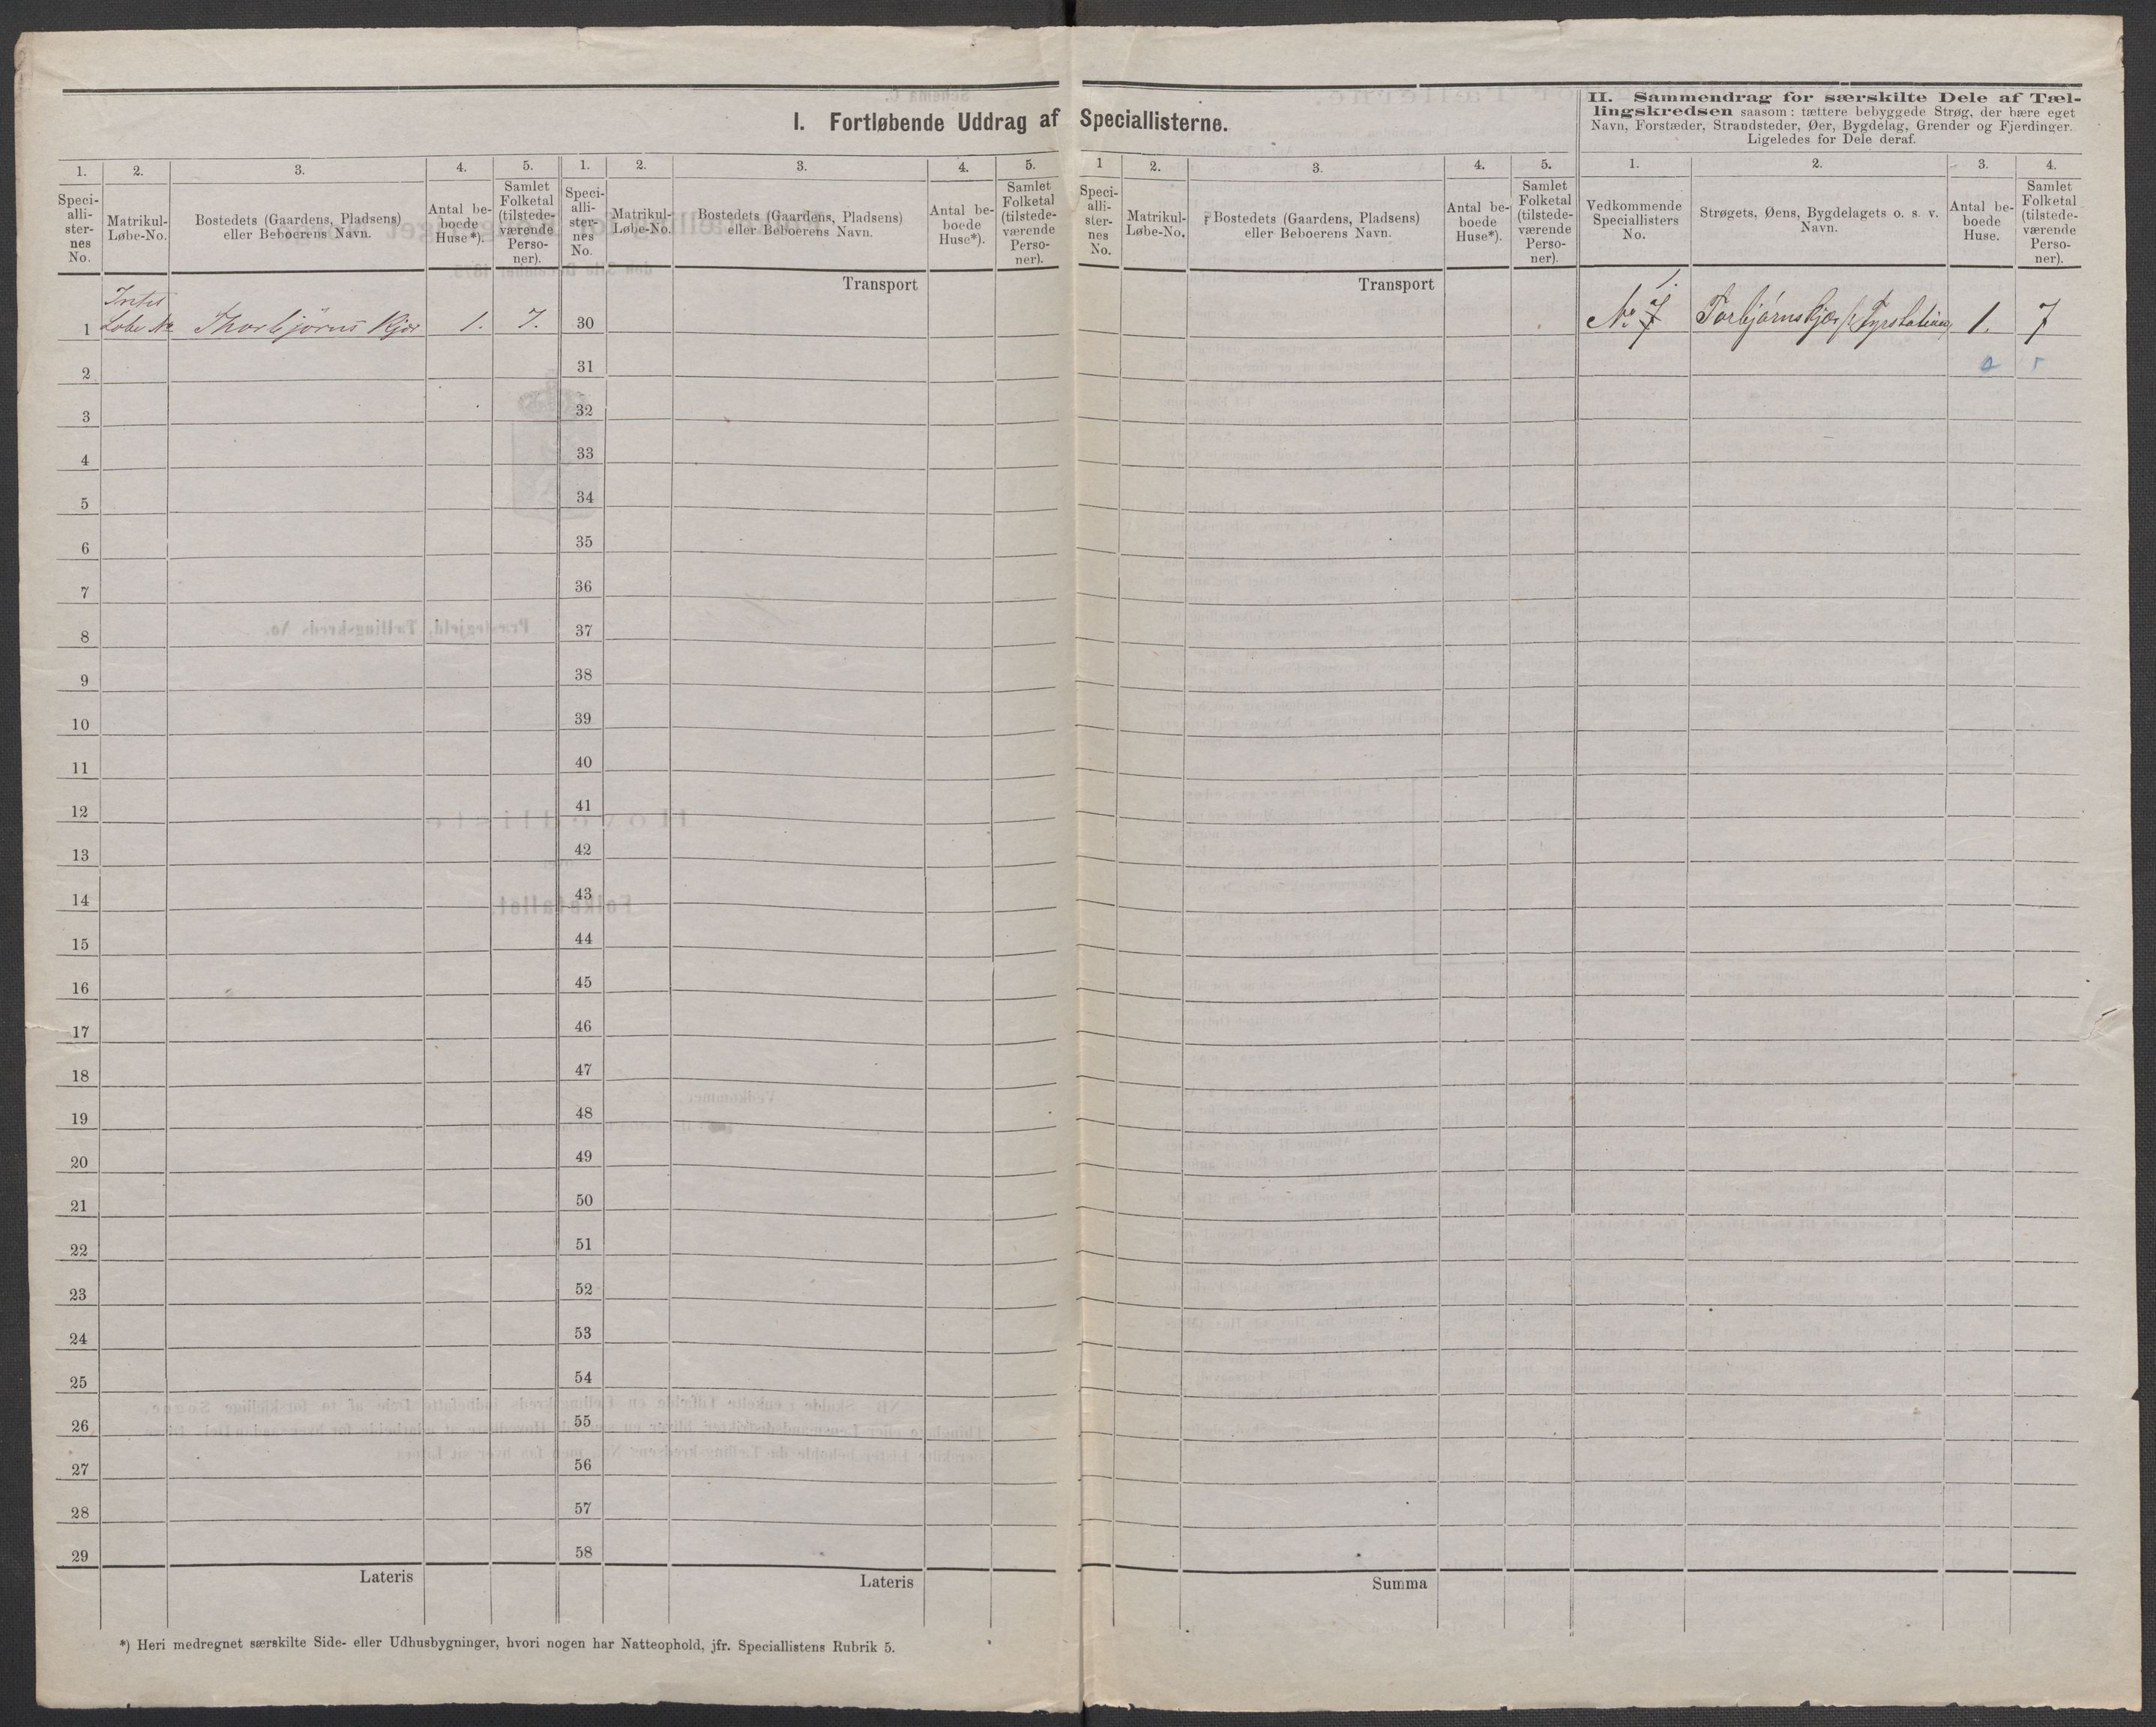 I. Fortløbende Uddrag af Speciallisterne.
II. Sammendrag for særskilte Dele af Tæl-
lingskredsen saasom: tættere bebyggede Strøg, der bære eget
Navn, Forstæder, Strandsteder, Øer, Bygdelag, Grender og Fjerdinger.
Ligeledes for Dele deraf.
1. 2. 3. 4. 5. 1. 2. 3. 4. 5. 1 2. 3. 4. 5. 1. 2. 3. 4.
Speci-
alli-
ster-
nes
No.
Matrikul-
Løbe-No.
Bostedets (Gaardens, Pladsens)
eller Beboerens Navn.
Antal be-
boede
Huse*).
Samlet
Folketal
(tilstede-
værende
Perso-
ner).
Speci-
alli-
ster-
nes
No.
Matrikul-
Løbe-No.
Bostedets (Gaardens, Pladsens)
eller Beboerens Navn.
Antal be-
boede
Huse*).
Samlet
Folketal
(tilstede-
værende
Perso-
ner).
Speci-
alli-
ster-
nes
No.
Matrikul-
Løbe-No.
Bostedets (Gaardens, Pladsens)
eller Beboerens Navn.
Antal be-
boede
Huse*).
Samlet
Folketal
(tilstede-
værende
Perso-
ner).
Vedkommende
Speciallisters
No.
Strøgets, Øens, Bygdelagets o. s. v.
Navn.
Antal be-
boede
Huse.
Samlet
Folketal
(tilstede-
værende
Perso-
ner).
Transport
Transport
1 Intet
Løbe No Thorbjørns Kjær 1. 7. 30
1.
No 7 Torbjørnskjær Fyrstation 1. 7
2 31
3 32
4 33
5 34
6 35
7 36
8 37
9 38
10 39
11 40
12 41
13 42
14 43
15 44
16 45
17 46
18 47
19 48
20 49
21 50
22 51
23 52
24 53
25 54
26 55
27 56
28 57
29 58
Lateris Lateris Summa
*) Heri medregnet særskilte Side- eller Udhusbygninger, hvori nogen har Natteophold, jfr. Speciallistens Rubrik 5.